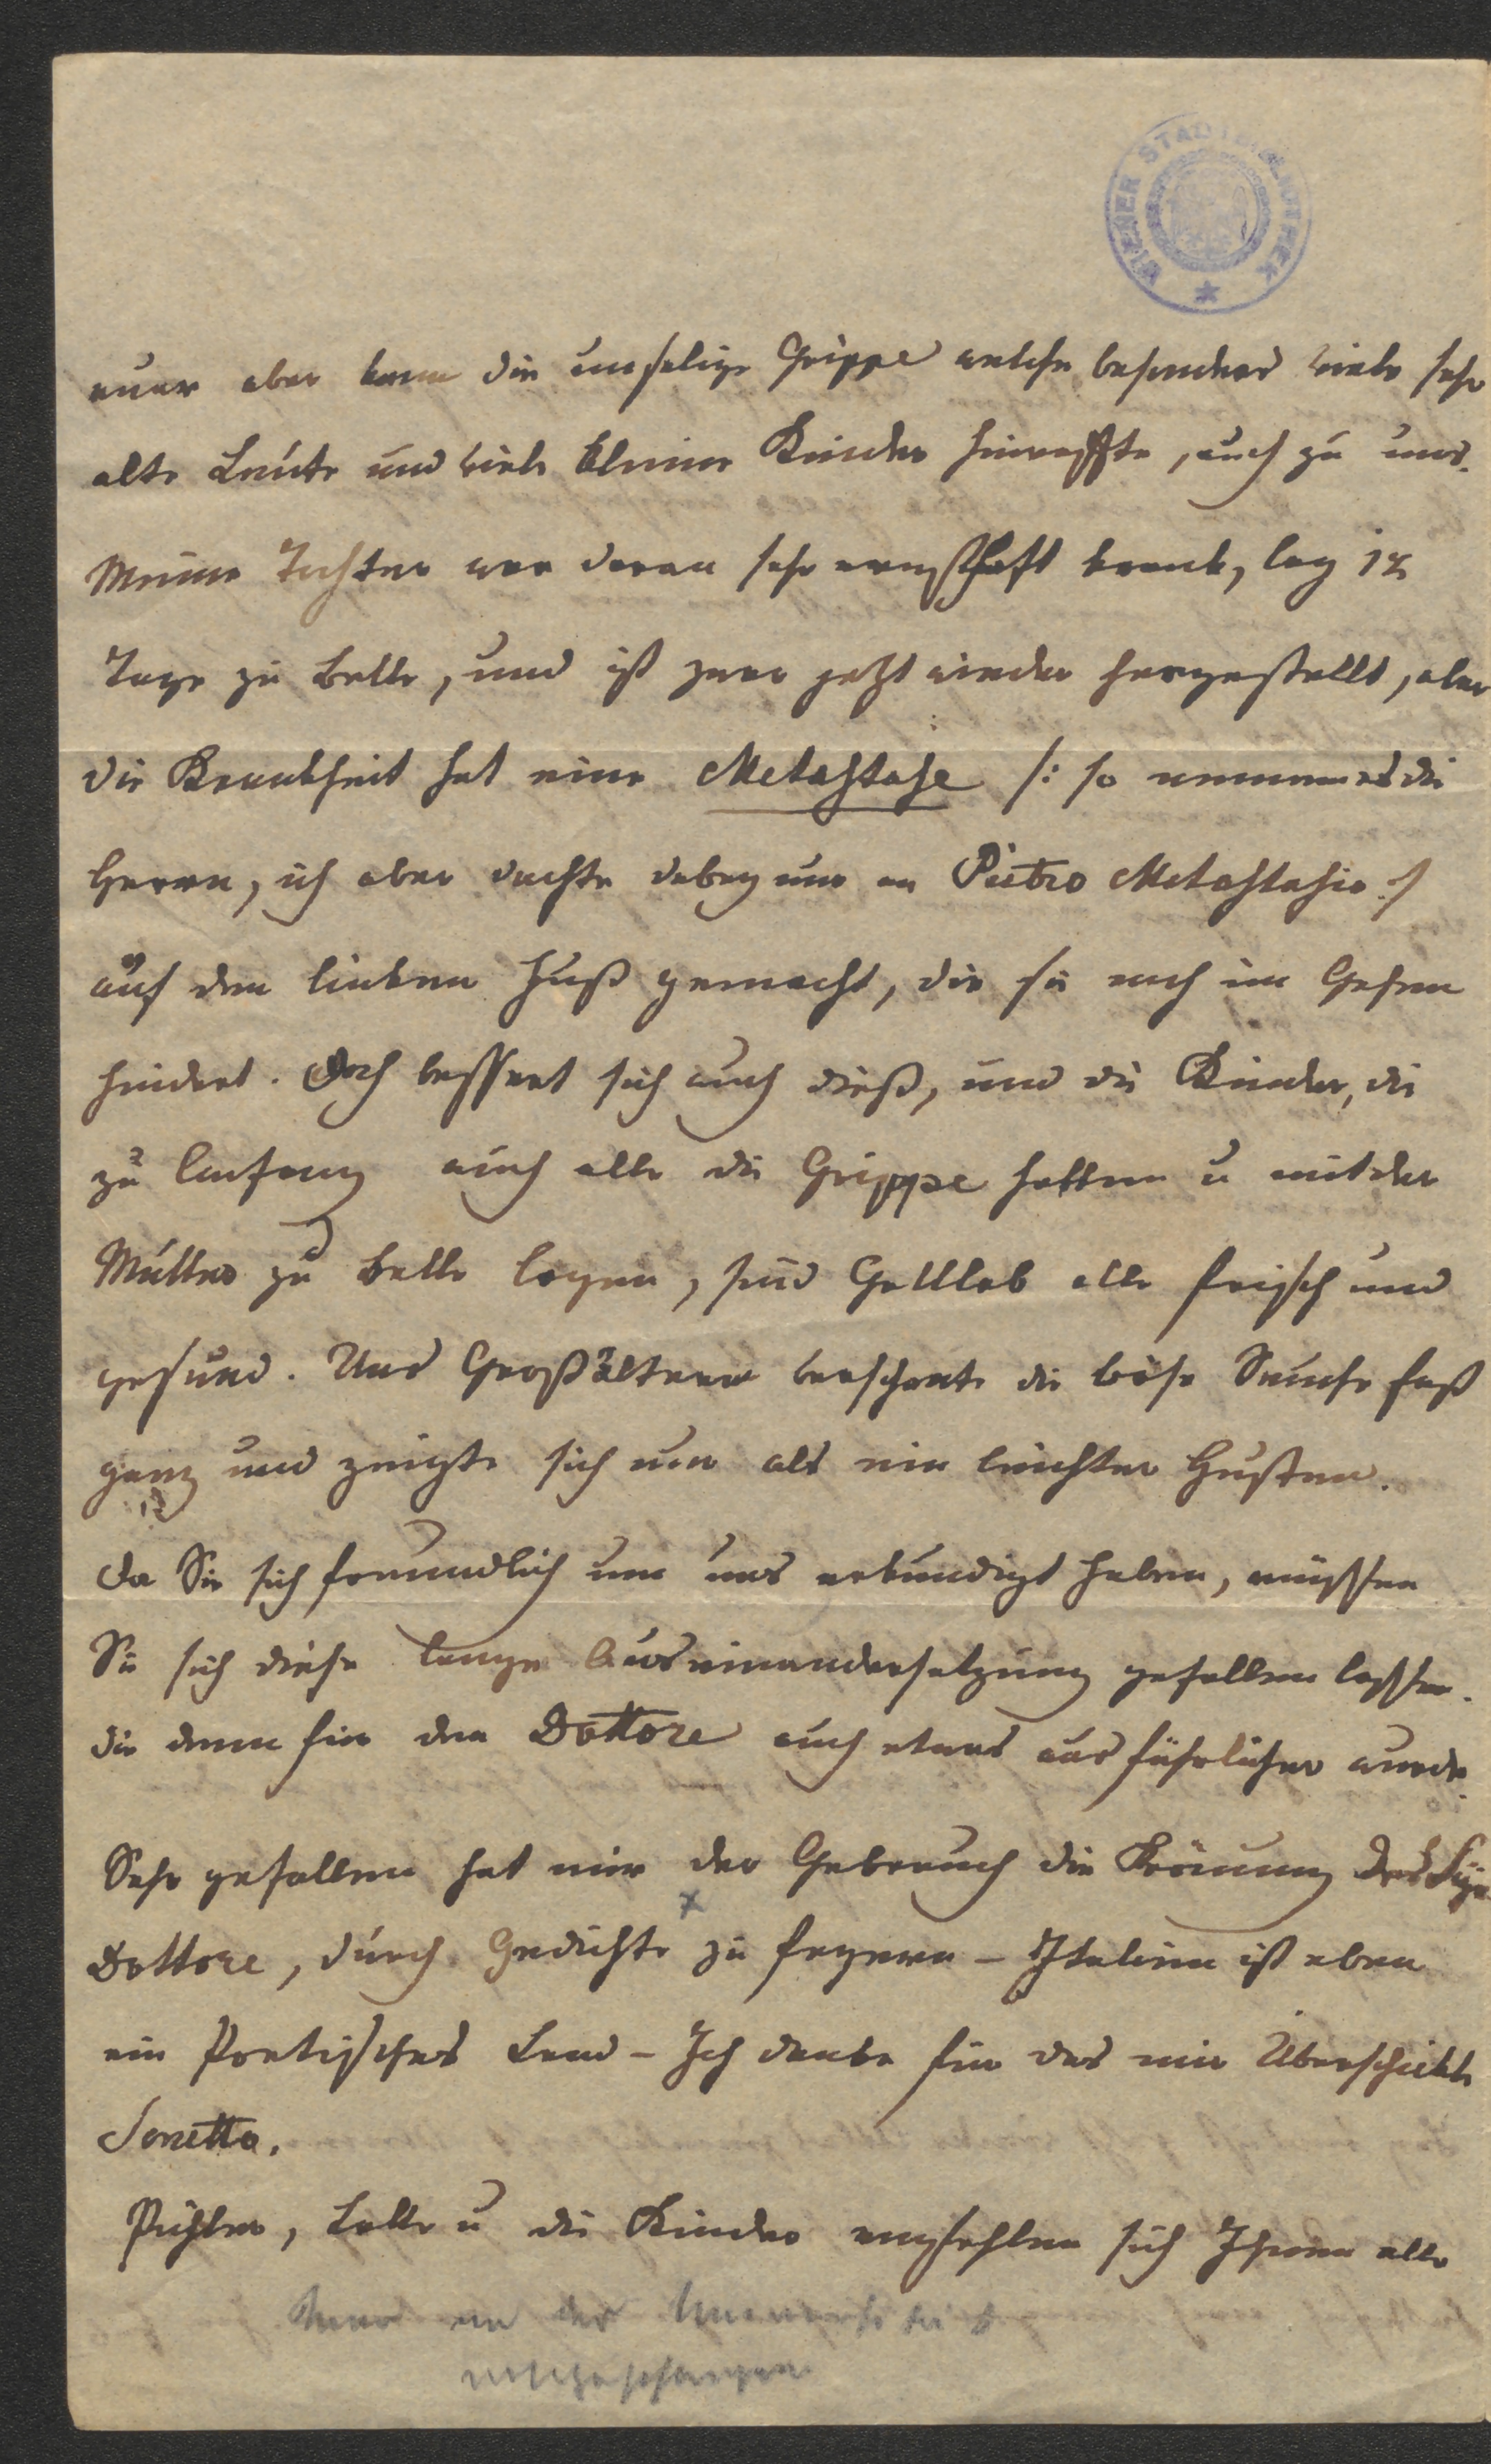 WIENER STADTBIBLIOTHEK
aber kam die unselige Grippe welche besonders viele sehr
alte Leute und viele kleine Kinder hinraffte, auch zu uns.
Meine Tochter war daran sehr ernsthaft krank, lag 14
Tage zu Bette, und ist zwar jetzt wieder hergestellt, aber
die Krankheit hat eine Metastase /: so nennen es die
Herrn, ich aber dachte dabey nur an Pietro Metastasio :/
auf den linken Fuß gemacht, die sie noch im Gehen
hindert. Doch bessert sich auch dieß, und die Kinder, die
zu Anfang auch alle die Grippe hatten u mit der
Mutter zu Bette lagen, sind Gottlob alle frisch und
gesund. Uns Großältern verschonte die böse Seuche fast
ganz und zeigte sich nur als ein leichter Husten.
Da Sie sich freundlich um uns erkundigt haben, müssen
Sie sich diese lange Auseinandersetzung gefallen lassen.
die denn für den Dottore auch etwas ausführlicher wurde.
Sehr gefallen hat mir der Gebrauch die Krönung des Sig.
Dottore, durch Gedichte zu feyern – Italien ist eben
ein Poetisches Land – Ich danke für das mir Überschickte
Sonetto.
Pichler, Lotte u die Kinder empfehlen sich Ihnen alle
an der Universität